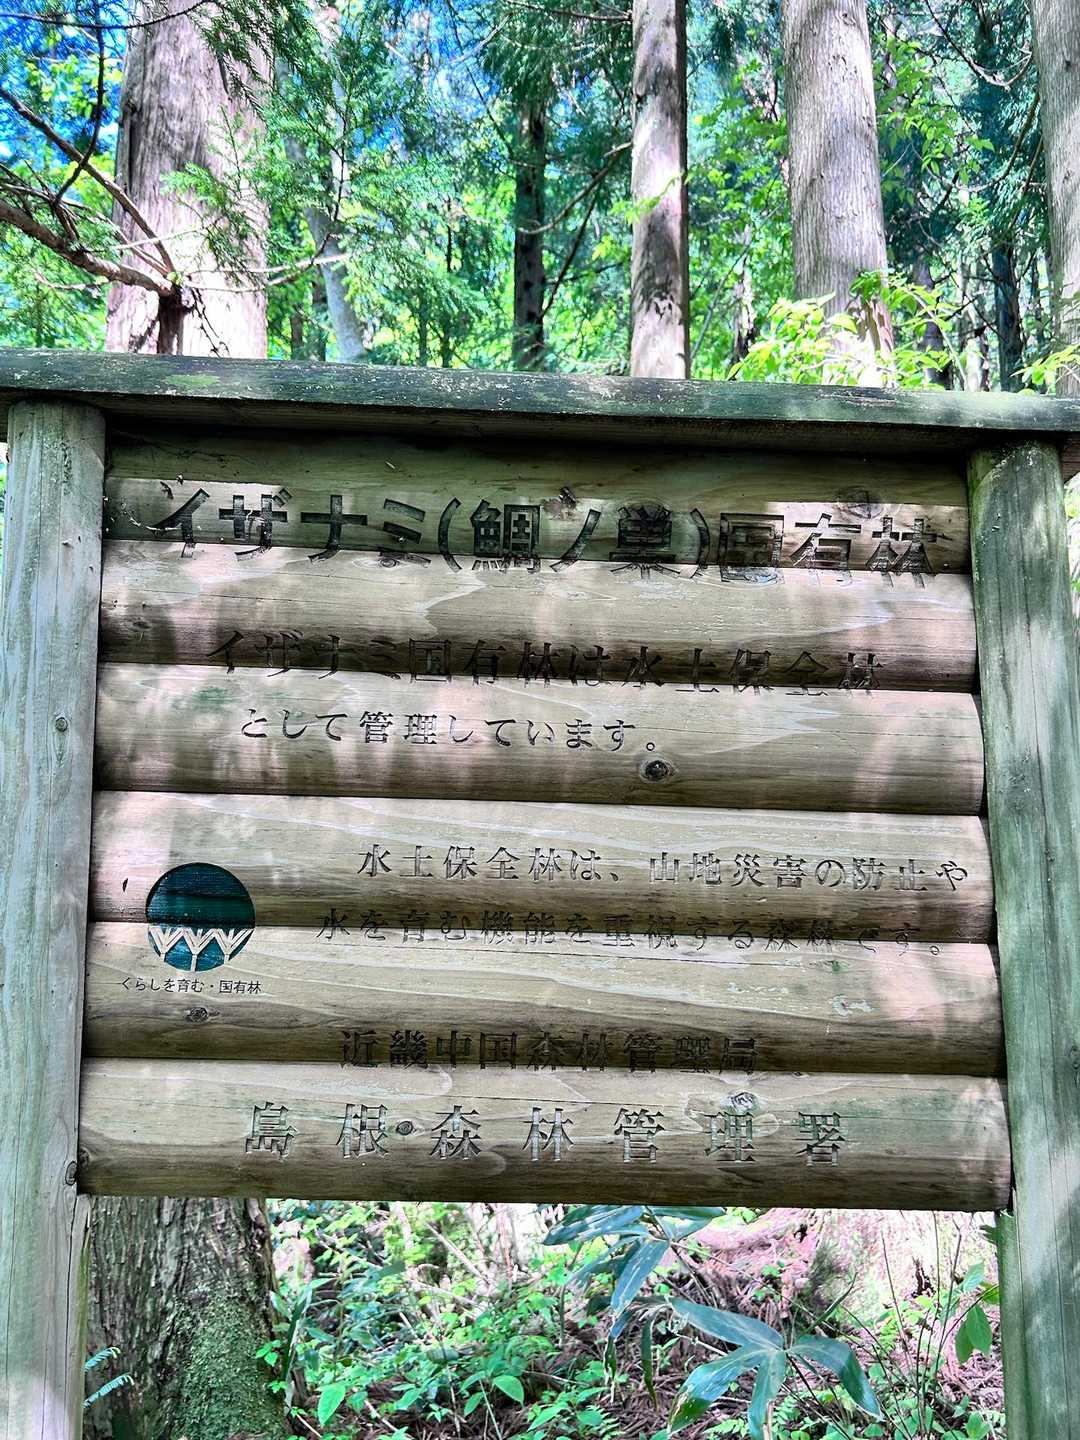 イザナミ(鯛ノ巣)国有林
イザナミ国有林は水土保全林
として管理しています。
水土保全林は、山地災害の防止や
水を育む機能を重視する森林です。
くらしを育む・国有林
近畿中国森林管理局
島根森林管理署